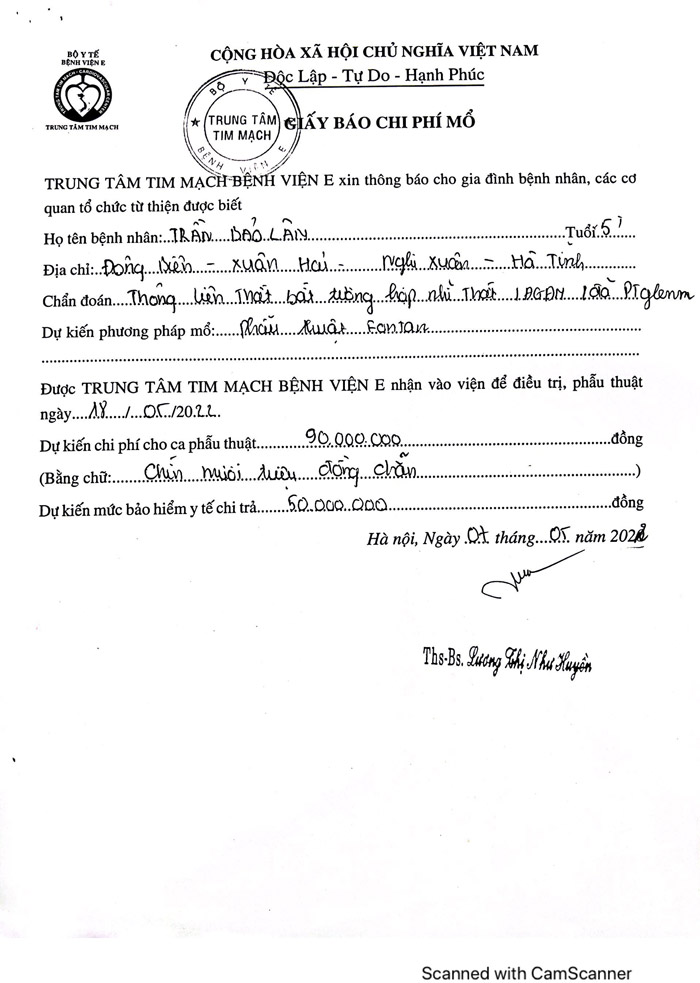 BỘ Y TẾ
BỆNH VIỆN E
TRUNG TÂM TIM MẠCH - CARDIOVASCULAR CENTER
TRUNG TÂM TIM MẠCH
CỘNG HÒA XÃ HỘI CHỦ NGHĨA VIỆT NAM
Độc Lập - Tự Do - Hạnh Phúc
BỘ Y TẾ
TRUNG TÂM
TIM MẠCH
BỆNH VIỆN E
GIẤY BÁO CHI PHÍ MỔ
TRUNG TÂM TIM MẠCH BỆNH VIỆN E xin thông báo cho gia đình bệnh nhân, các cơ
quan tổ chức từ thiện được biết
Họ tên bệnh nhân: TRẦN BẢO LÂN Tuổi 5
Địa chỉ: Đông Biên - Xuân Hải - Nghi Xuân - Hà Tĩnh
Chẩn đoán Thông liên thất bất tương hợp nhĩ thất
Dự kiến phương pháp mổ: phẫu thuật Fontan
Được TRUNG TÂM TIM MẠCH BỆNH VIỆN E nhận vào viện để điều trị, phẫu thuật
ngày 18/05/2022.
Dự kiến chi phí cho ca phẫu thuật 90.000.000 đồng
(Bằng chữ: Chín mươi triệu đồng chẵn)
Dự kiến mức bảo hiểm y tế chi trả 50.000.000 đồng
Hà nội, Ngày 07 tháng 05 năm 2022
Ths-Bs. Lương Thị Như Huyền
Scanned with CamScanner